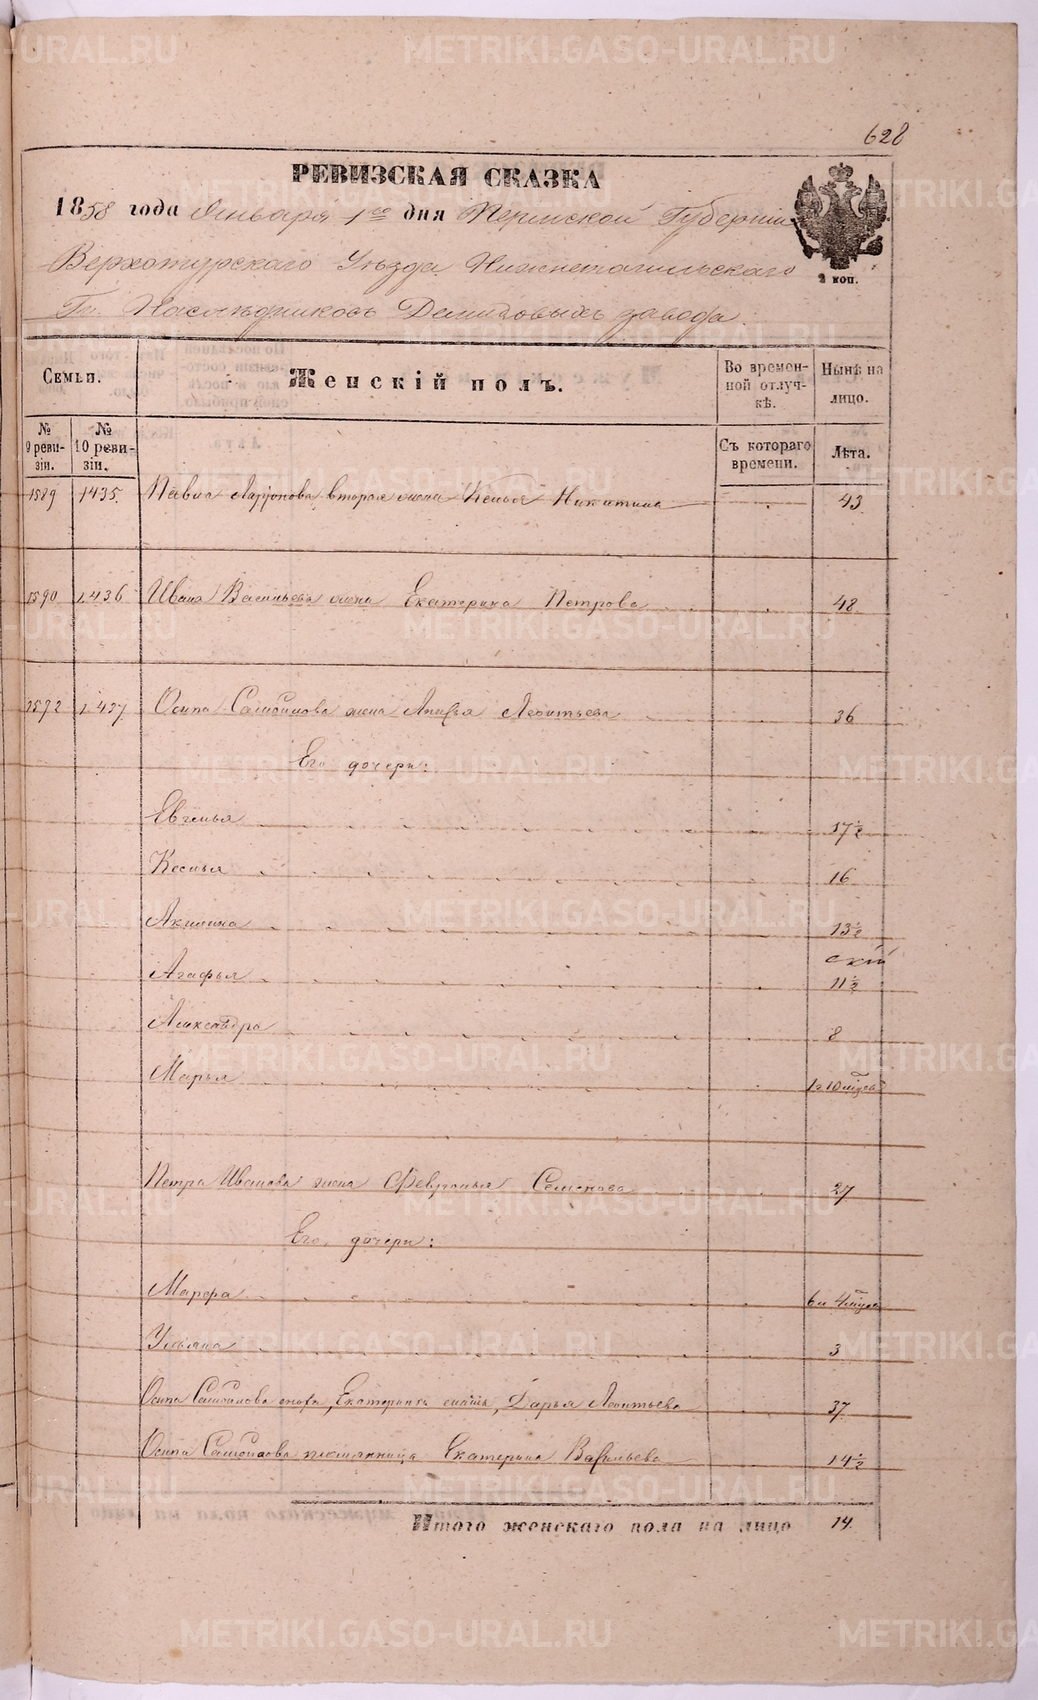 628
РЕВИЗСКАЯ СКАЗКА
1858 года Января 1го дня Пермской Губерніи
Верхотурскаго Уѣзда Нижнетагильскаго
Гг. Наслѣдниковъ Демидовыхъ завода
2 коп.
Семьи. Женскій полъ. Во времен-ной отлуч-кѣ. Нынѣ на лицо.
№ 9 реви-зіи. № 10 реви-зіи. Съ котораго времени. Лѣта.
1589 1435. Павла Ларіонова вторая жена Ксенья Никитина 43
1590 1.436 Ивана Васильева жена Екатерина Петрова 48
1592 1.437 Осипа Самсонова жена Леонтьева 36
Его дочери:
Евгенья 17½
Ксенья 16
Акилина 13½
Агафья 11½
Александра 8
Марья 1 г 10 мѣсе
Петра Иванова жена Февронья Семенова 27
Его дочери:
Марфа 4 мѣсе
Ульяна 3
Осипа Самсонова Екатерина Дарья Леонтьева 37
Осипа Самсонова племянница Екатерина Васильева 14½
Итого женскаго пола на лицо 14
METRIKI.GASO-URAL.RU